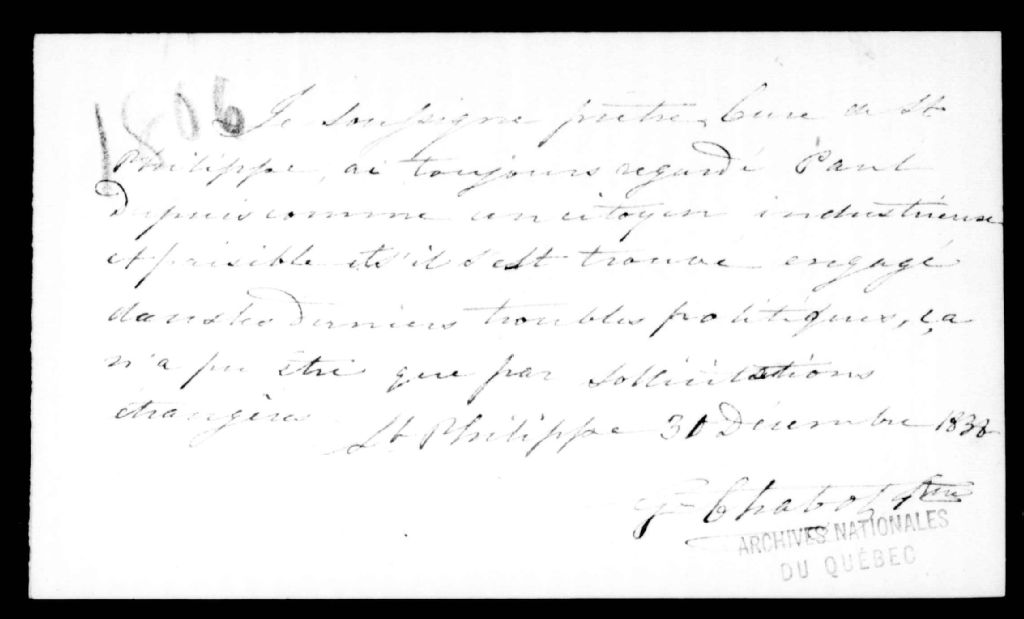 1806
Je soussigné prêtre, Curé de St
Philippe, ai toujours regardé Paul
Dupuis comme un citoyen industrieux
et paisible et s'il s'est trouvé engagé
dans les derniers troubles politiques, ça
n'a pu être que par sollicitations
étrangères
St Philippe 31 Décembre 1838
F Chabot Ptre
ARCHIVES NATIONALES
DU QUÉBEC